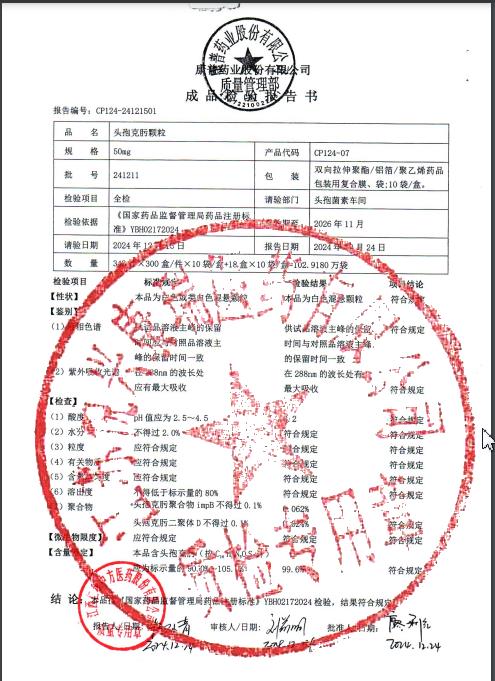 质量管理部
成品检验报告书
报告编号：CP124-24121501
品 名 头孢克肟颗粒
规 格 50mg 产品代码 CP124-07
批 号 241211 包 装 双向拉伸聚酯/铝箔/聚乙烯药品包装用复合膜、袋;10 袋/盒。
检验项目 全检 请验部门 头孢菌素车间
检验依据 《国家药品监督管理局药品注册标准》YBH02172024 2026 年 11 月
请验日期 2024 年 12 月 15 日 报告日期 2024 年 12 月 24 日
数 量 ×300 盒/件×10 袋/盒+18 盒×10 袋/盒=102.9180 万袋
检验项目 标准规定 检验结果 项目结论
【性状】 本品为白色或类白色混悬颗粒 本品为白色混悬颗粒 符合规定
【鉴别】
相色谱 供试品溶液主峰的保留 供试品溶液主峰的保留 符合规定
时间应与对照品溶液主 时间与对照品溶液主峰
峰的保留时间一致 的保留时间一致
（2）紫外吸收光谱 在 288nm 的波长处 在 288nm 的波长处有
应有最大吸收 最大吸收 符合规定
【检查】
（1）酸度 pH 值应为 2.5～4.5 符合规定
（2）水分 不得过 2.0% 符合规定 符合规定
（3）粒度 应符合规定 符合规定 符合规定
（4）有关物质 应符合规定 符合规定 符合规定
（5）含量均匀度 应符合规定 符合规定 符合规定
（6）溶出度 不得低于标示量的 80% 符合规定 符合规定
聚合物 头孢克肟聚合物 impB 不得过 0.1% 0.062% 符合规定
头孢克肟二聚体 D 不得过 符合规定
【微生物限度】 应符合规定 符合规定 符合规定
【含量测定】 本品含头孢克肟
应为标示量的 90.0%～105. 99.6% 符合规定
结 论： 本品按《国家药品监督管理局药品注册标准》YBH02172024 检验，结果符合规定
报告人/日期: 2024.12.24 审核人/日期: 批准人/日期: 2024.12.24